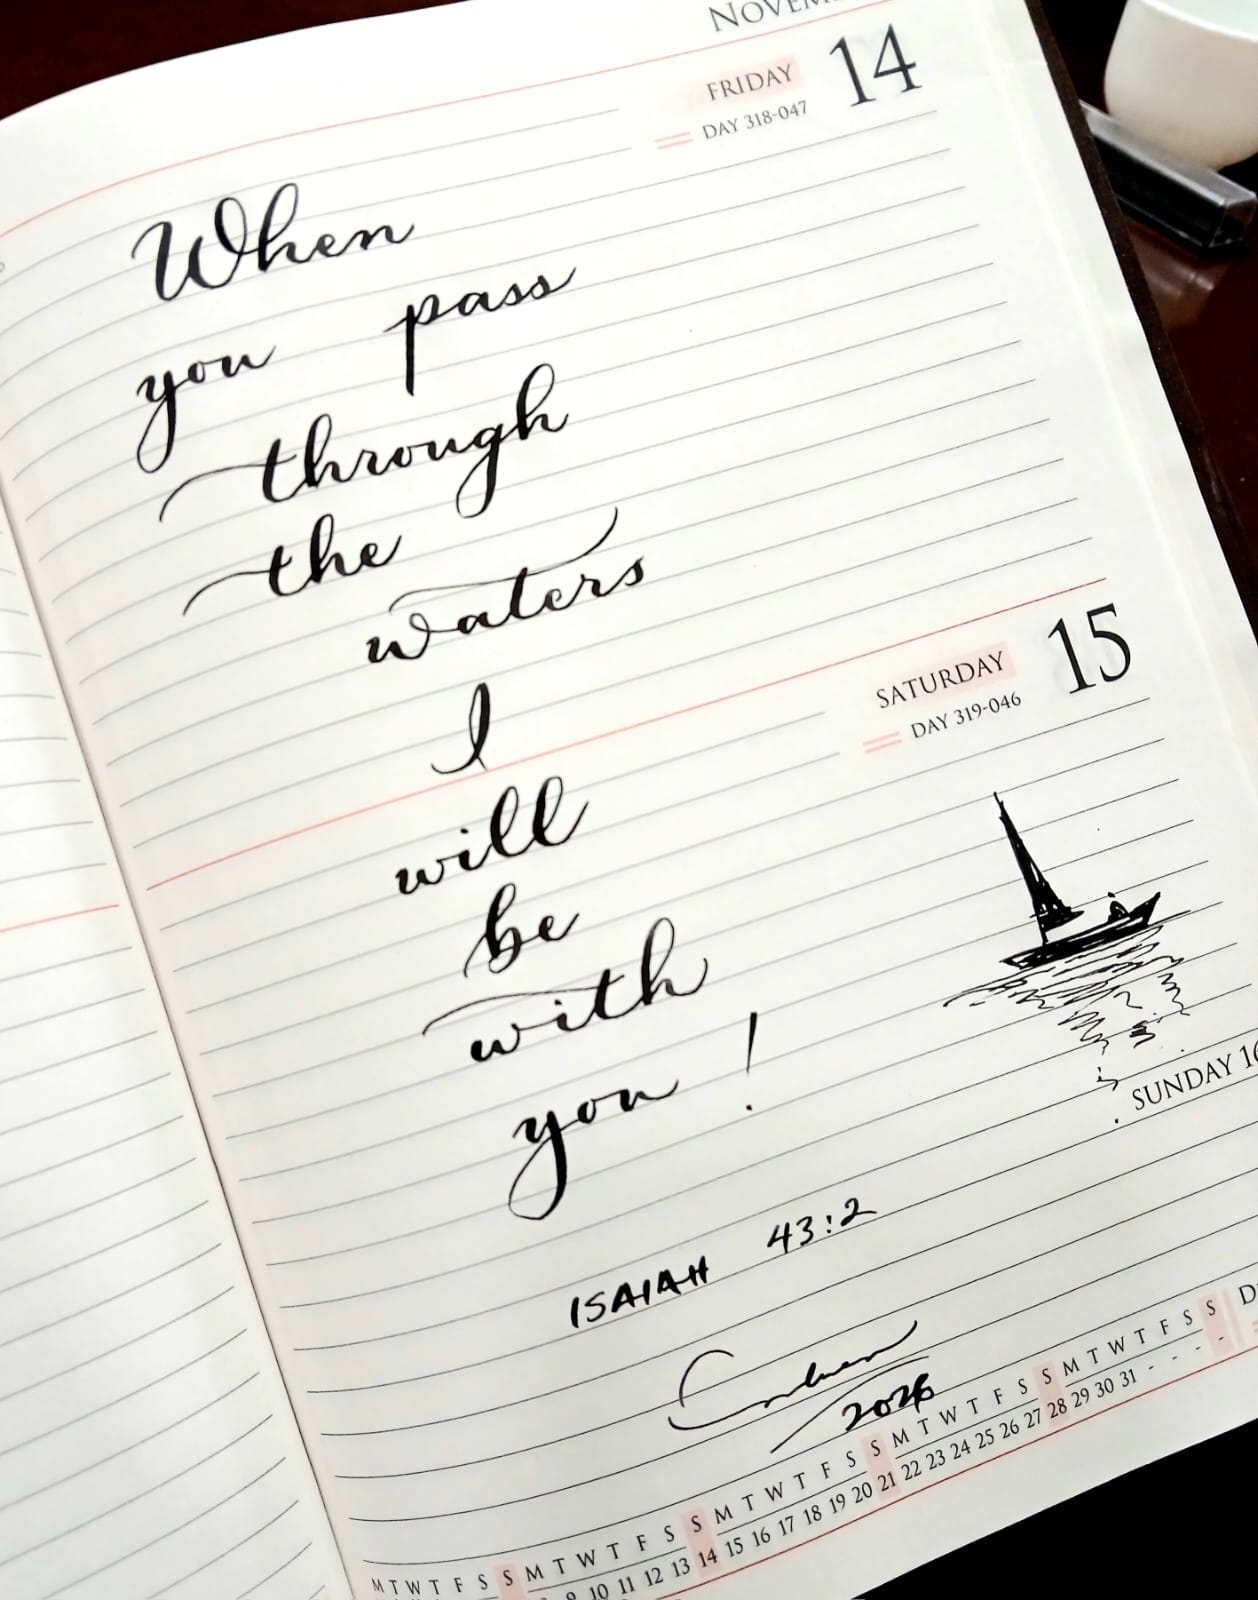 FRIDAY 14
DAY 318-047
When
you pass
through
the
waters
I
will
be
with
you !
SATURDAY 15
DAY 319-046
SUNDAY
ISAIAH 43:2
2026
M T W T F S S M T W T F S S M T W T F S S M T W T F S S M T W T F S S
9 10 11 12 13 14 15 16 17 18 19 20 21 22 23 24 25 26 27 28 29 30 31 - - - -